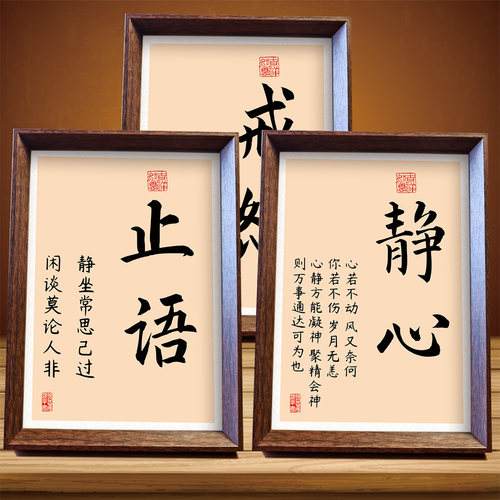 戒怒
止语
静坐常思己过
闲谈莫论人非
静心
心若不动 风又奈何
你若不伤 岁月无恙
心静方能凝神 聚精会神
则万事通达可为也